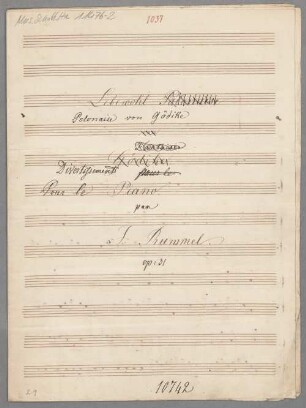 1037
Lebewohl
Polonaise von Gödike
Divertissements
Pour le Piano
par
J. Rummel.
op: 21
10742